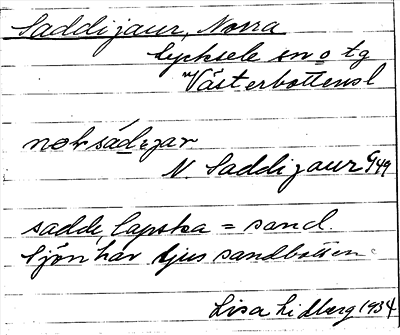 Saddijaur, Norra
Lycksele sn o tg
Västerbottens l
norsádejar
N Saddijaur G 49
sadde, lapska = sand.
Sjön har ljus sandbotten
Lisa Lidberg 1934